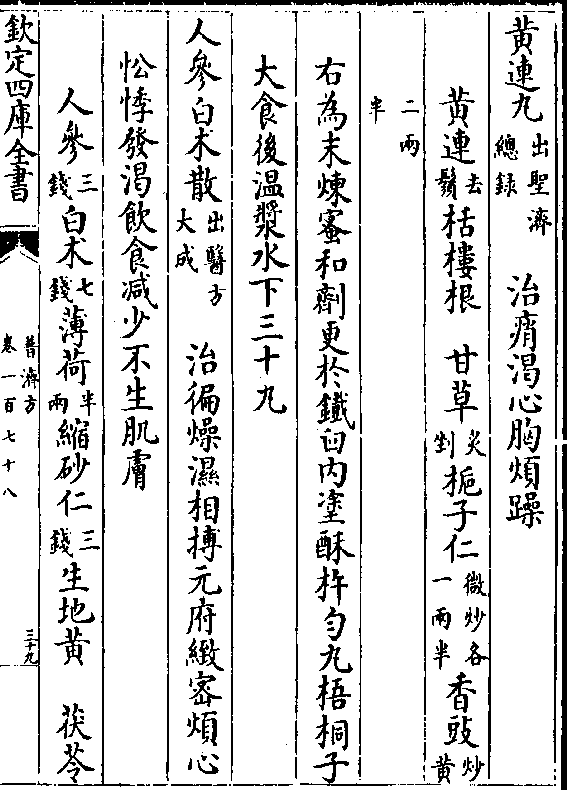 黄連丸出聖濟總録 治痟渴心胸煩躁
黄連去鬚 栝樓根 甘草炙剉 梔子仁微炒各一兩半 香豉炒黄
二兩半
右為末煉蜜和劑更於鐵臼内塗酥杵匀丸梧桐子
大食後温漿水下三十丸
人參白术散出醫方大成 治徧燥濕相搏元府緻密煩心
忪悸發渴飲食减少不生肌膚
人參三錢 白术七錢 薄荷半兩 縮砂仁三錢 生地黄 茯苓
欽定四庫全書
普濟方
卷一百七十八
三十九